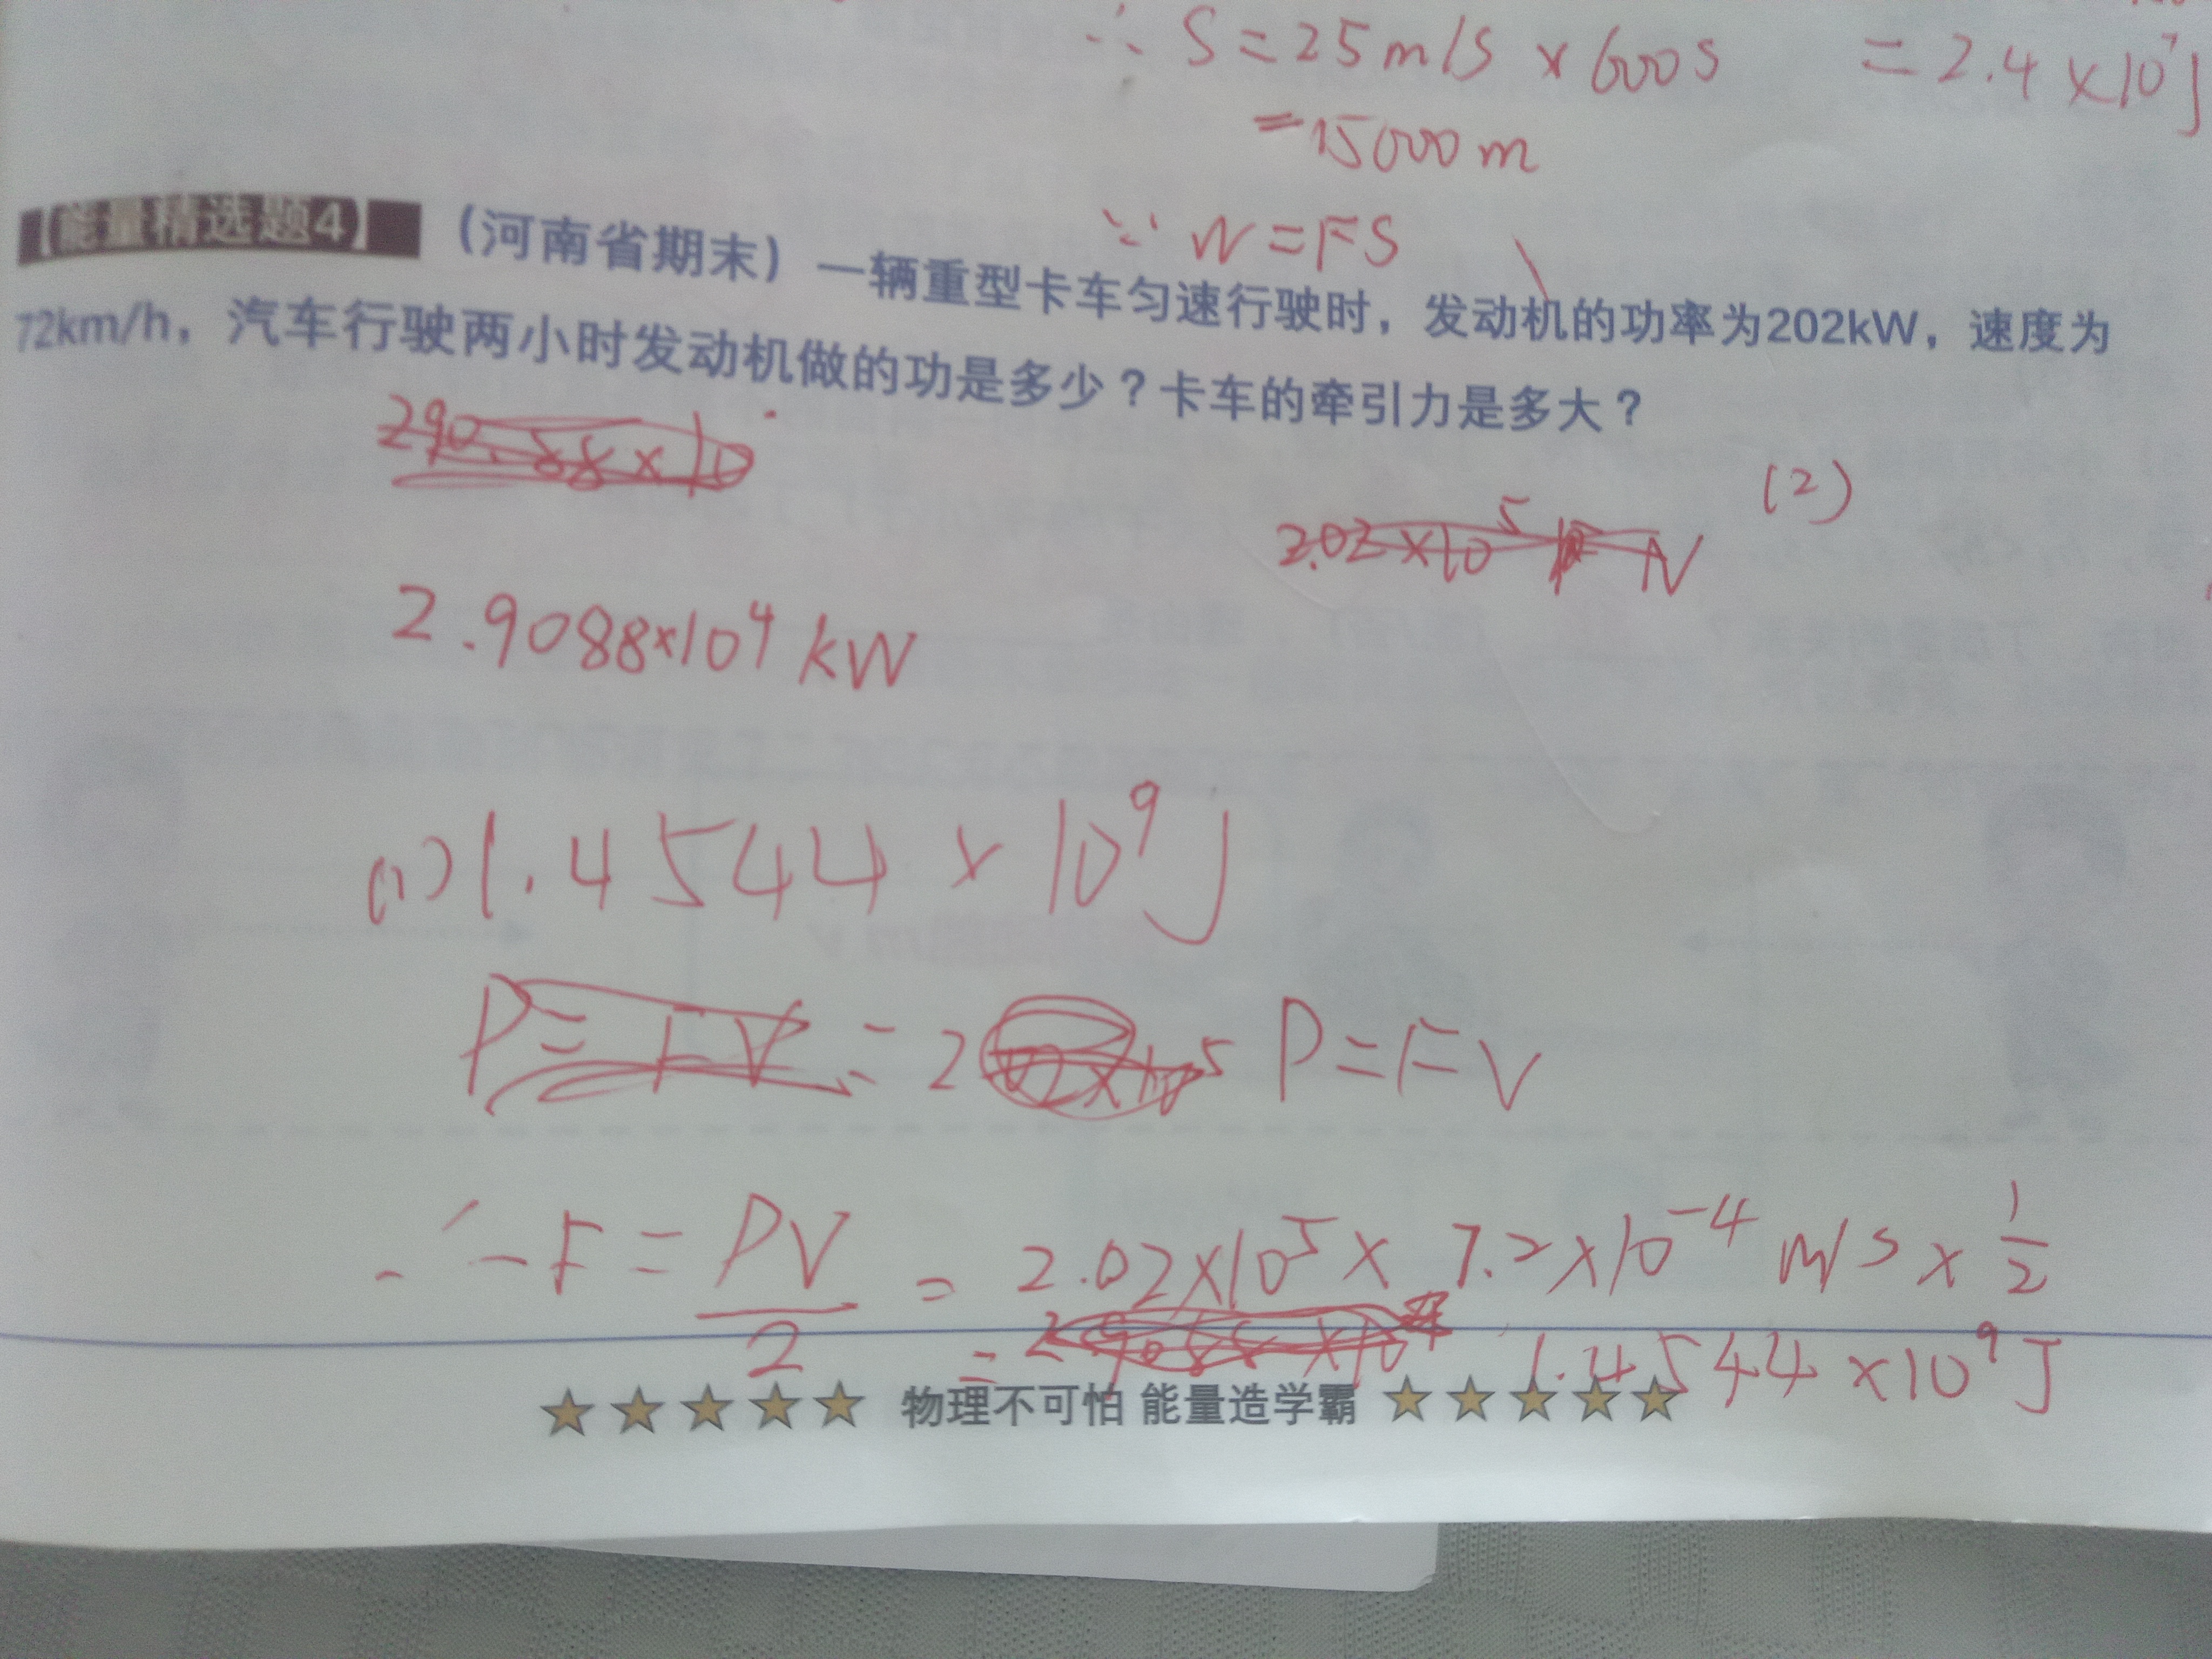 ∴ S=25m/s×600s =2.4×10⁷J
=15000m
∵ W=FS
【能量精选题4】（河南省期末）一辆重型卡车匀速行驶时，发动机的功率为202kW，速度为
72km/h，汽车行驶两小时发动机做的功是多少？卡车的牵引力是多大？
290.88×10
2.02×10⁵ N (2)
2.9088×10⁴kW
(1)1.4544×10⁹J
P=FV=2.02×10⁵ P=FV
∴F=PV/2=2.02×10⁵×7.2×10⁻⁴m/s×1/2
= 1.4544×10⁹J
★★★★★ 物理不可怕 能量造学霸 ★★★★★